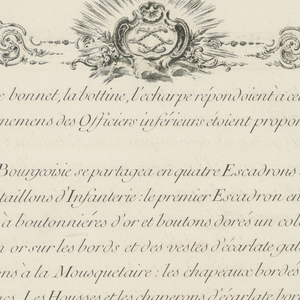 bonnet, la bottine, l'echarpe répondoient à ce
nemens des Officiers inférieurs étoient propor
Bourgeoisie se partagea en quatre Escadrons
taillons d'Infanterie: le premier Escadron en
à boutonniéres d'or et boutons dorés un col
or sur les bords et des vestes d'écarlate gal
ns à la Mousquetaire: les chapeaux bordés
Les Housses et les chaperons d'écarlate bo